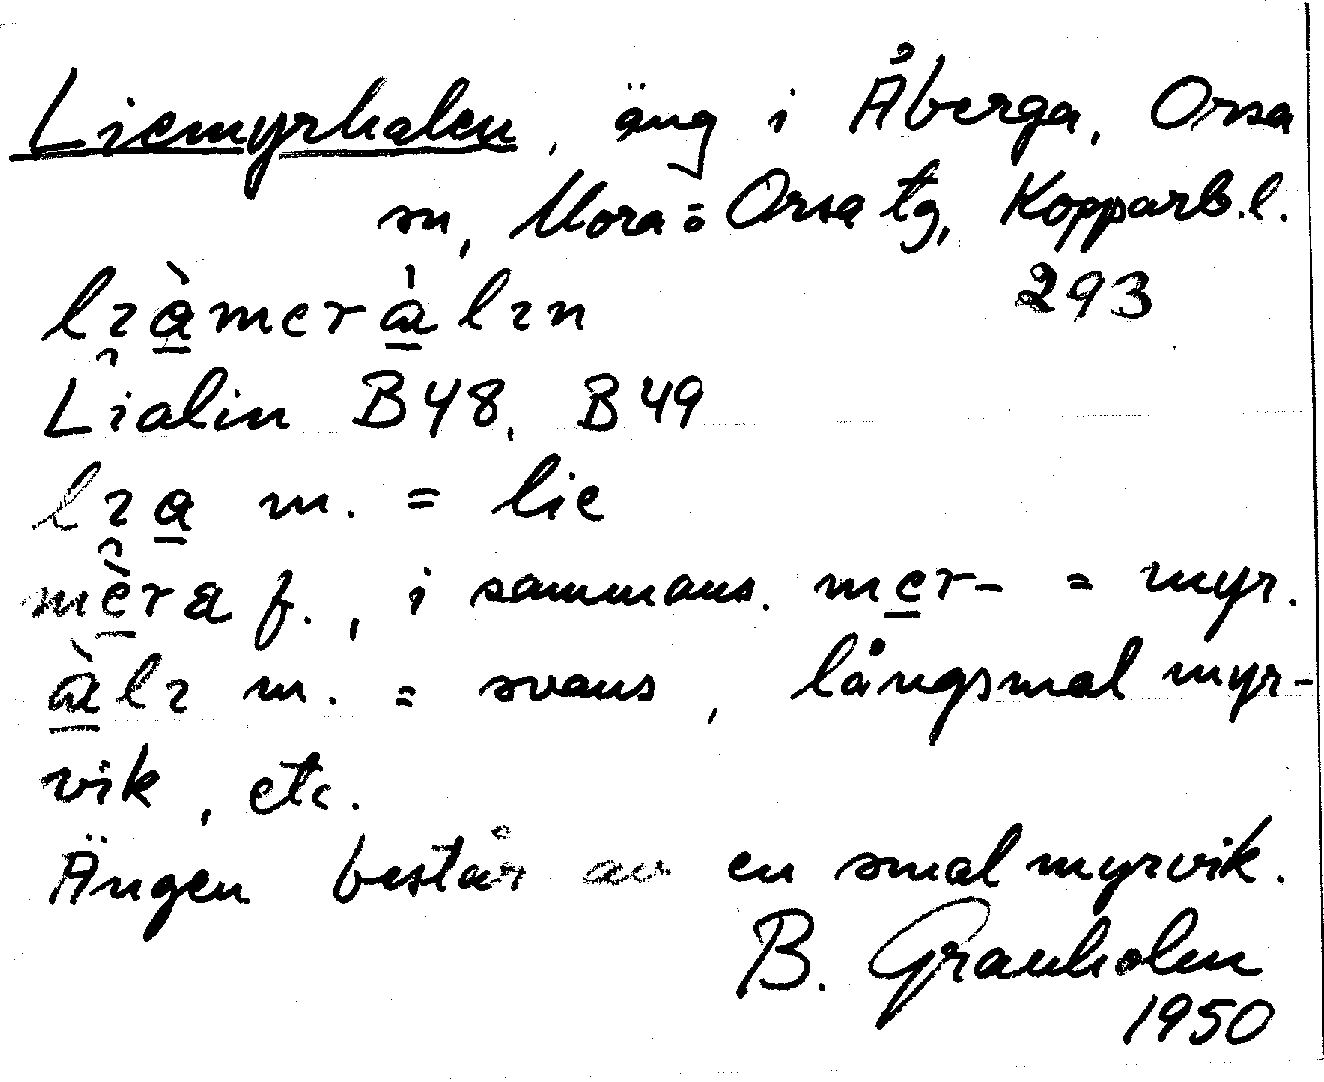 Liemyrhalen, äng i Åberga, Orsa
sn, Mora o Orsa tg, Kopparb.l.
293
lıà̲merà̲lın
Lialin B48, B49
lıa̲ m. = lie
mè̲ra f., i sammans. me̲r- = myr.
à̲lı m. = svans, långsmal myr-
vik, etc.
Ängen består av en smal myrvik.
B. Granholm
1950